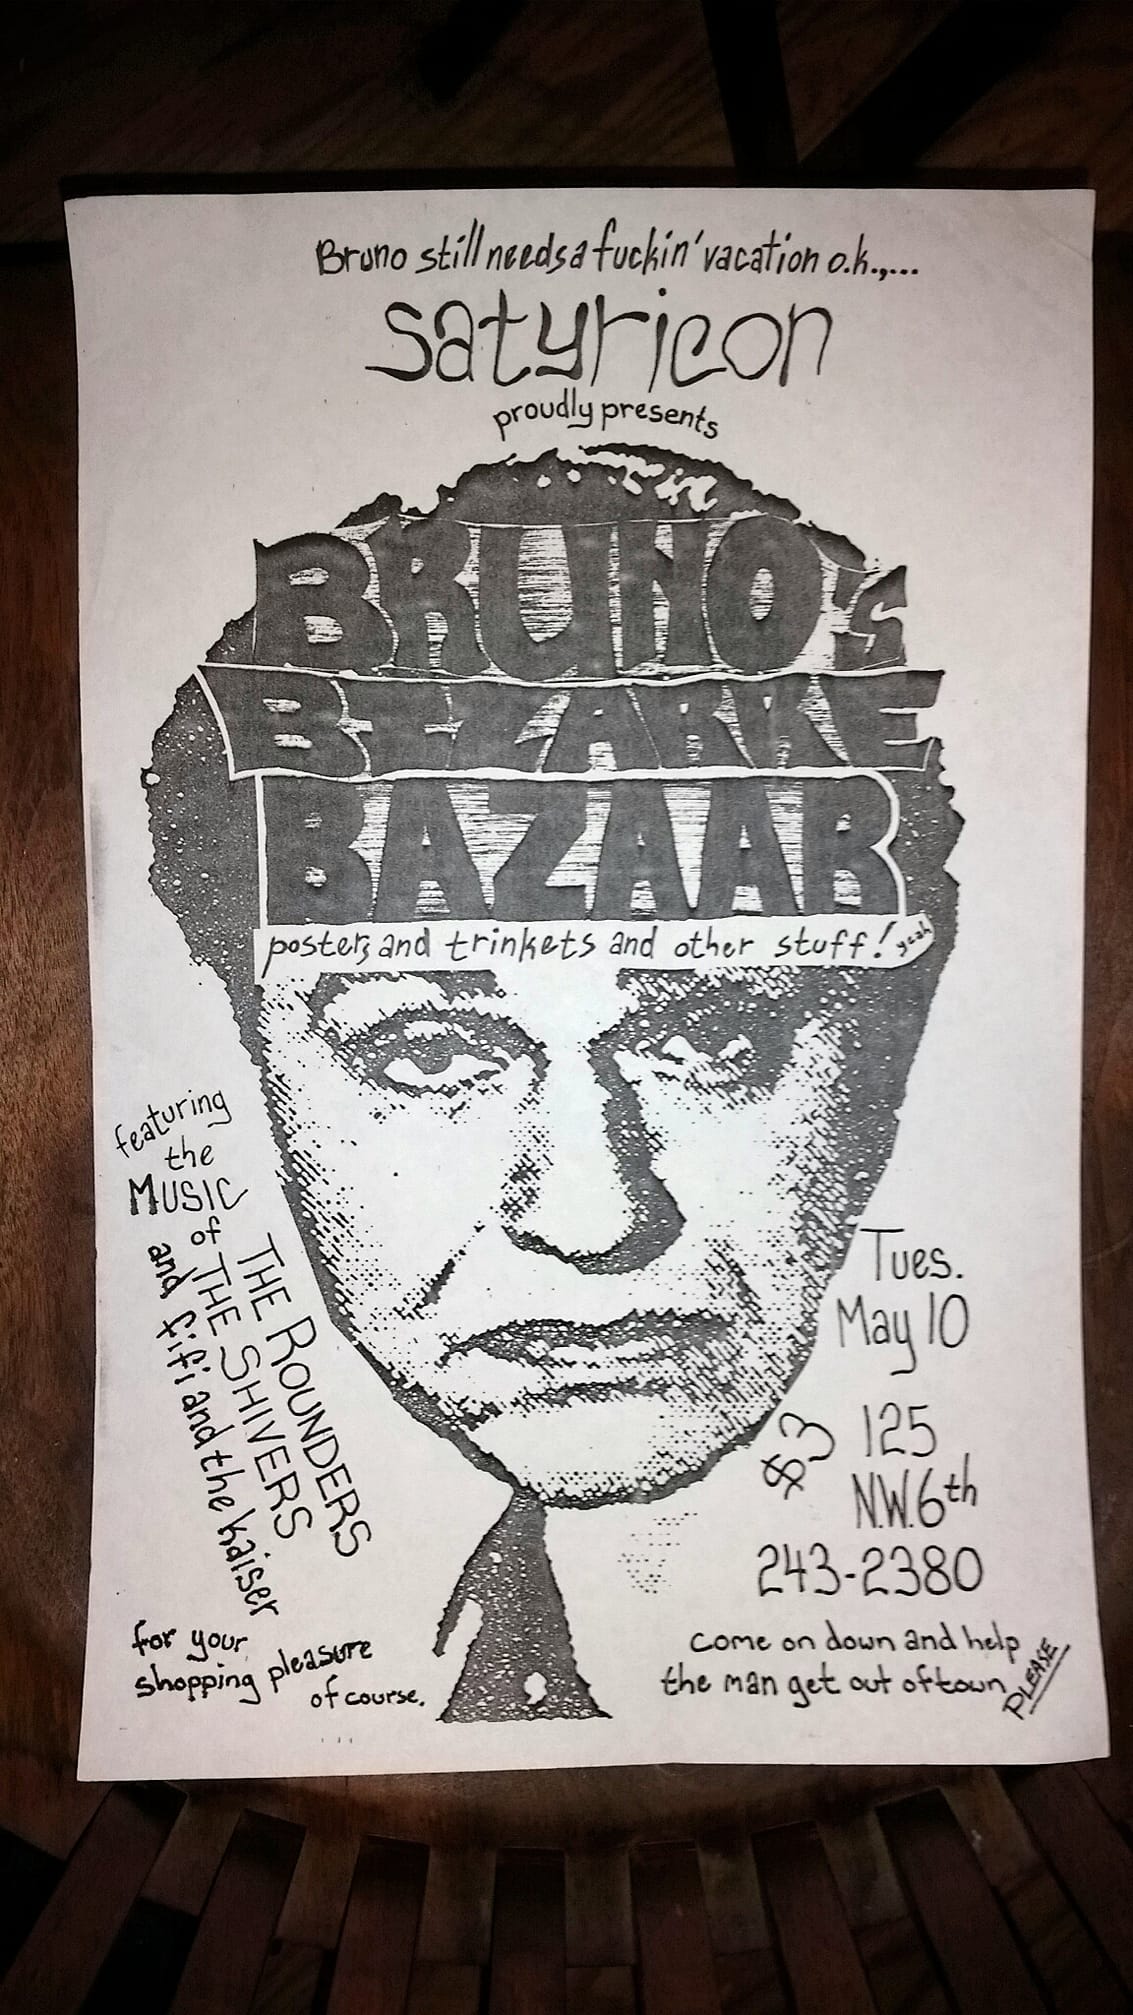 Bruno still needs a fuckin' vacation o.k.,...
satyricon
proudly presents
BRUNO'S
BIZARRE
BAZAAR
posters and trinkets and other stuff! yeah
featuring
the
MUSIC
of
THE ROUNDERS
THE SHIVERS
and fifi and the kaiser
for your
shopping pleasure
of course.
Tues.
May 10
$3
125
N.W. 6th
243-2380
come on down and help
the man get out of town
PLEASE